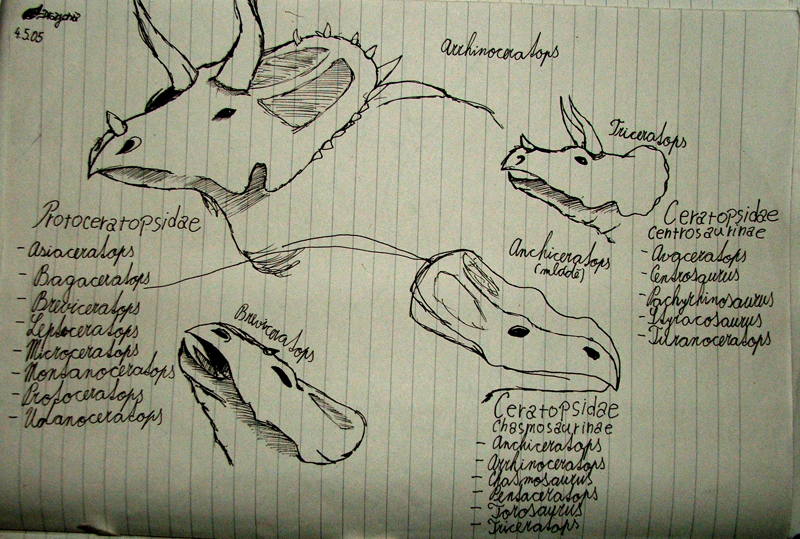 4.5.05
Arrhinoceratops
Triceratops
Protoceratopsidae
- Asiaceratops
- Bagaceratops
- Breviceratops
- Leptoceratops
- Microceratops
- Montanoceratops
- Protoceratops
- Udanoceratops
Ceratopsidae
Centrosaurinae
- Avaceratops
- Centrosaurus
- Pachyrhinosaurus
- Styracosaurus
- Turanoceratops
Anchiceratops
(mládě)
Breviceratops
Ceratopsidae
Chasmosaurinae
- Anchiceratops
- Arrhinoceratops
- Chasmosaurus
- Pentaceratops
- Torosaurus
- Triceratops